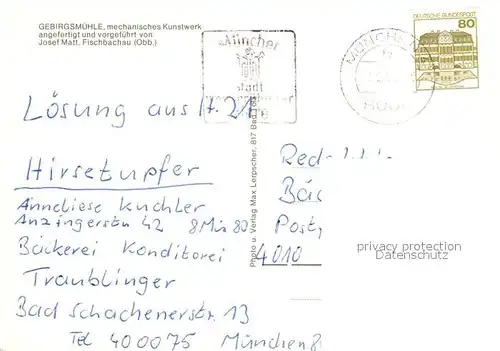 GEBIRGSMÜHLE, mechanisches Kunstwerk
angefertigt und vorgeführt von
Josef Matt, Fischbachau (Obb.)
Münchner
stadt
MÜNCHEN
DEUTSCHE BUNDESPOST
80
Lösung aus H. 21
Hirsetupfer
Anneliese Kuchler
Anzingerstr 42 8 Mü 80
Bäckerei Konditorei
Traublinger
Bad Schachenerstr. 13
Tel 400075 München 8
Photo u. Verlag Max Lerpscher, 817 Bad Tölz
Red
Bäc
Post
4010
privacy protection
Datenschutz